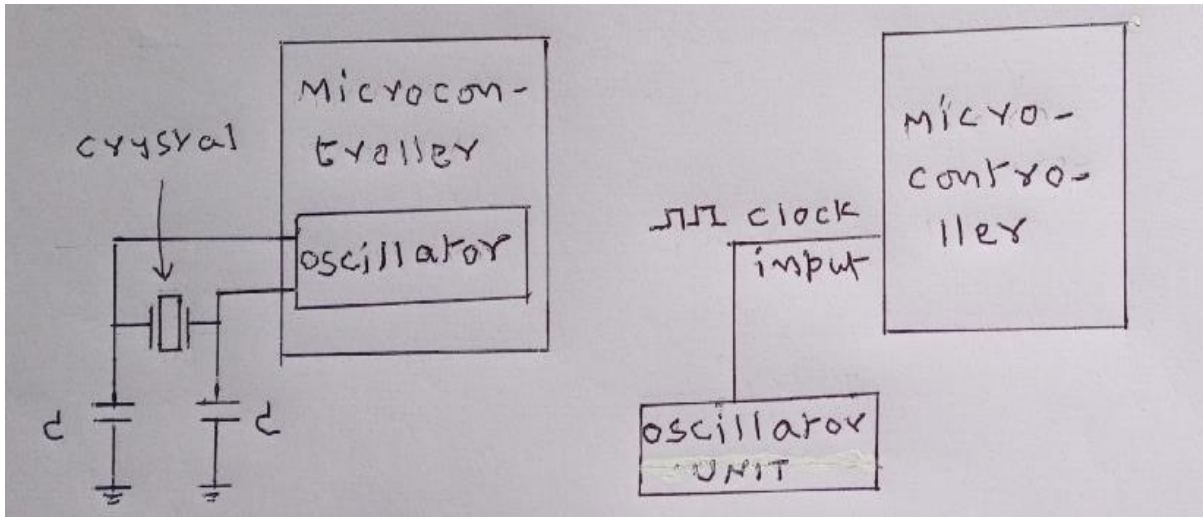 Microcon-
troller
crysral
oscillator
c
c
Micro-
contro-
ller
clock
input
oscillator
UNIT